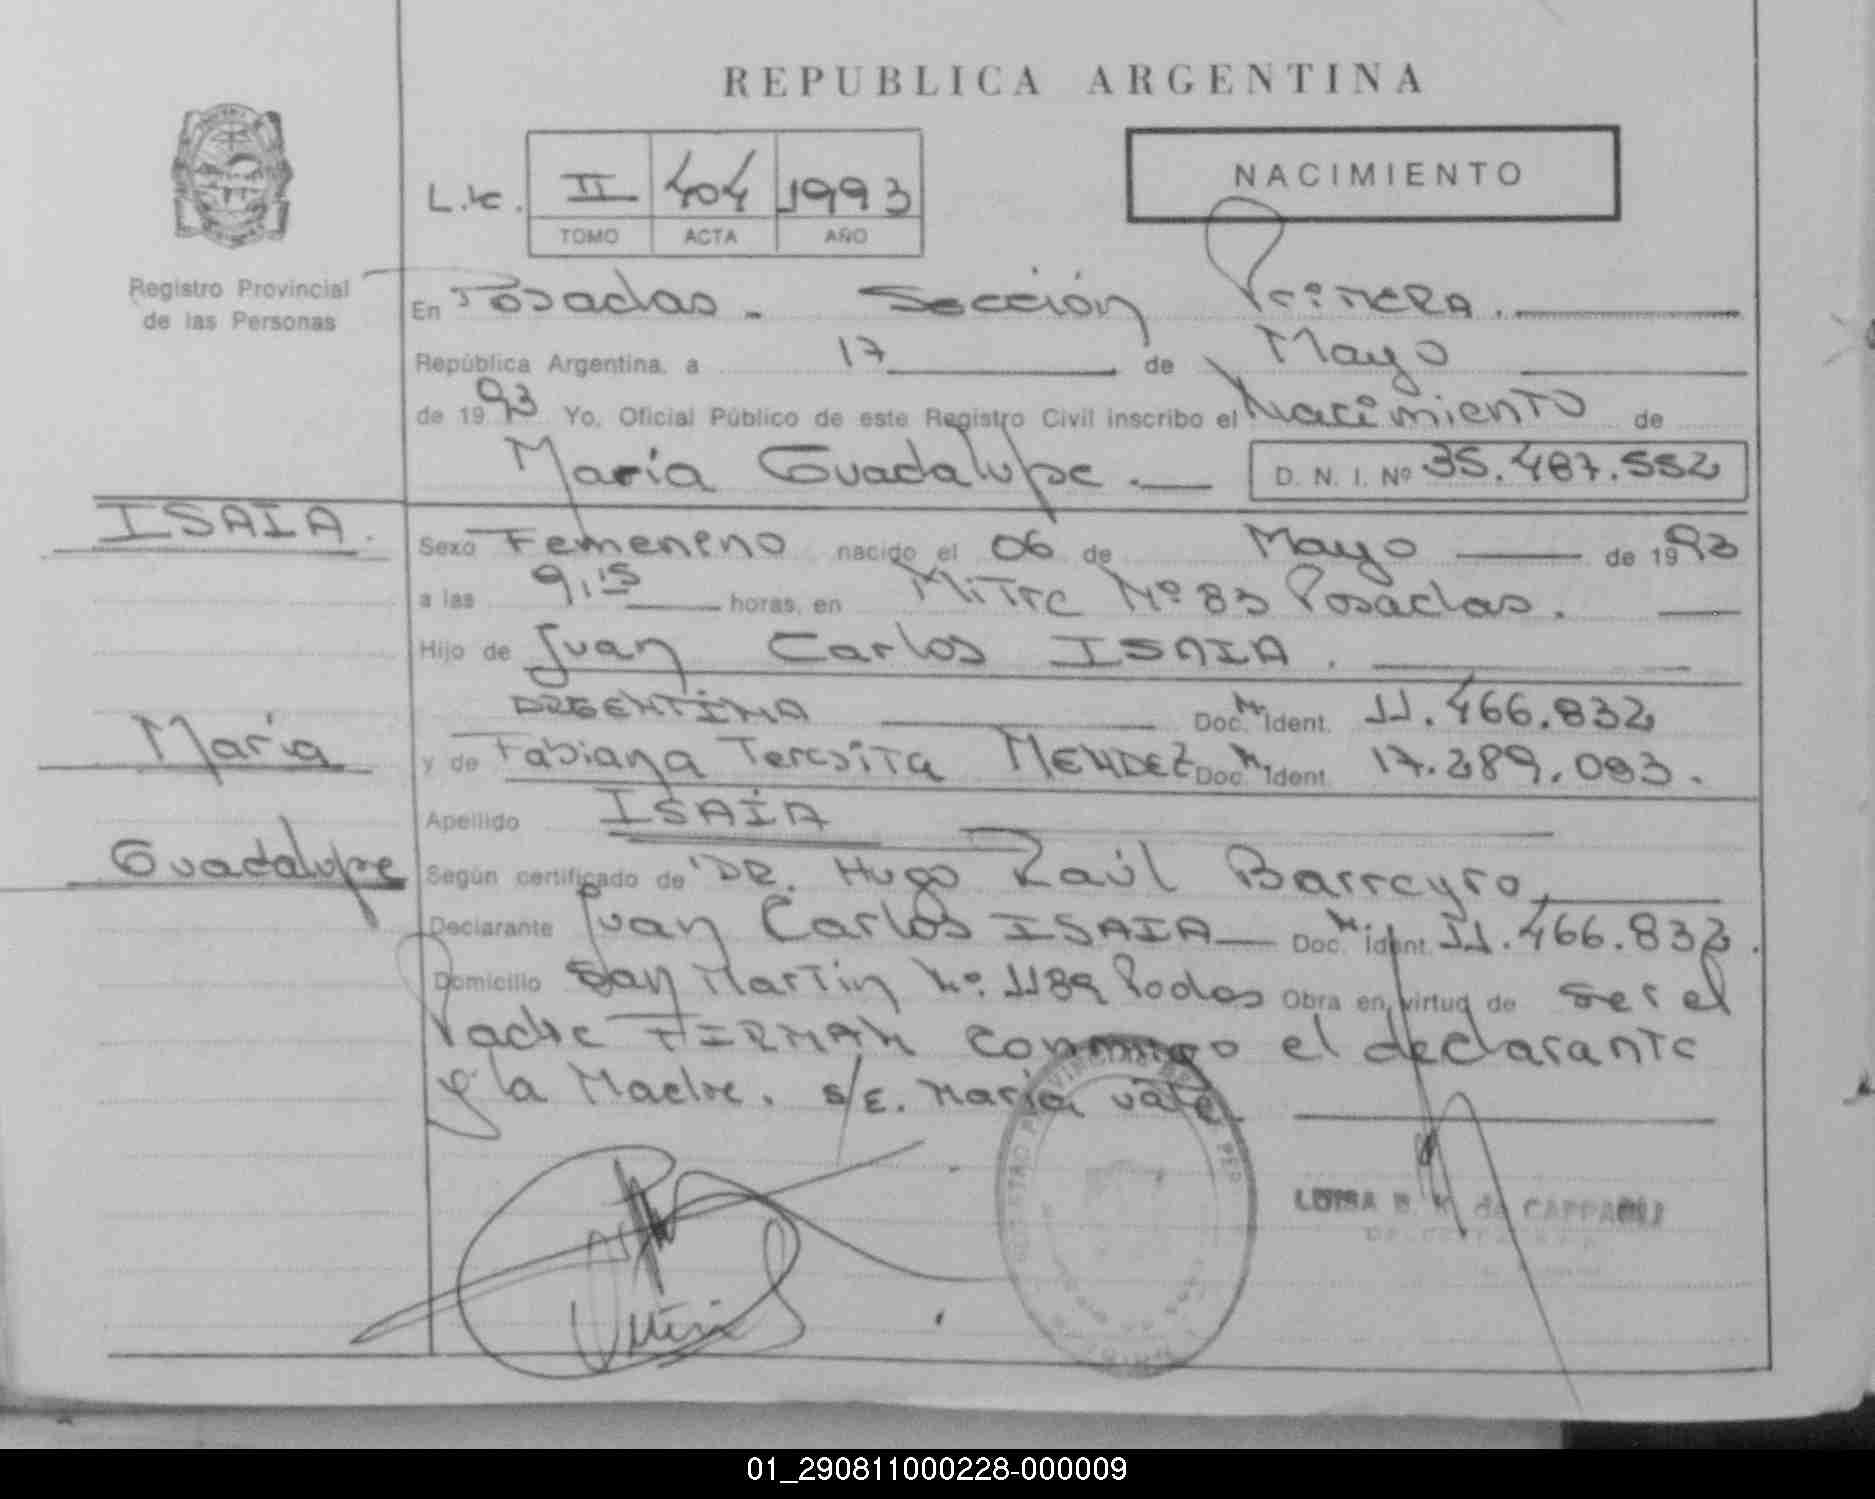 REPUBLICA ARGENTINA
NACIMIENTO
L.K. II 404 1993
TOMO ACTA AÑO
Registro Provincial
de las Personas
En Posadas - Sección Primera.
República Argentina, a 17 de Mayo
de 1993 Yo, Oficial Público de este Registro Civil inscribo el Nacimiento de
María Guadalupe. D. N. I. Nº 35.487.552
ISAIA.
Sexo Femenino nacido el 06 de Mayo de 1993
a las 9,15 horas, en Mitre Nº 83 Posadas.
Hijo de Juan Carlos ISAIA.
ARGENTINA Doc. N. Ident. 11.466.832
María
y de Fabiana Teresita MENDEZ Doc. N. Ident. 17.289.093.
Apellido ISAÍA
Guadalupe
Según certificado de DR. Hugo Raúl Barreyro
Declarante Juan Carlos ISAIA Doc. N. Ident. 11.466.832.
Domicilio San Martin Nº. 1189 Podas Obra en virtud de ser el
Padre FIRMAN conmigo el declarante
y la Madre. s/E. María vale.
LUISA B. K de
01_290811000228-000009